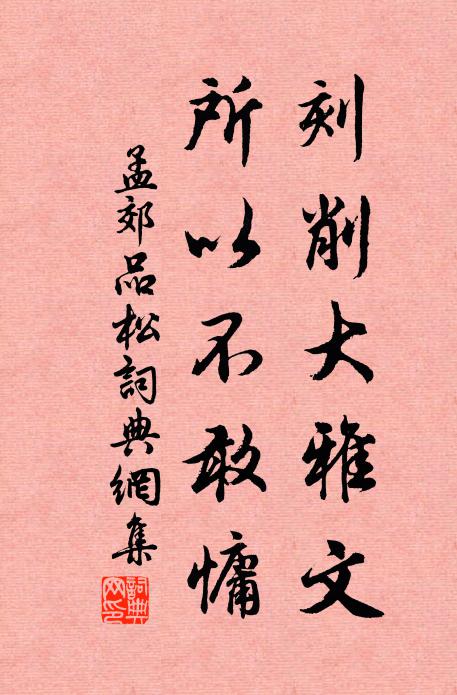 刻削大雅文
所以不敢慵
孟郊品松詞典網集
詞典
网印